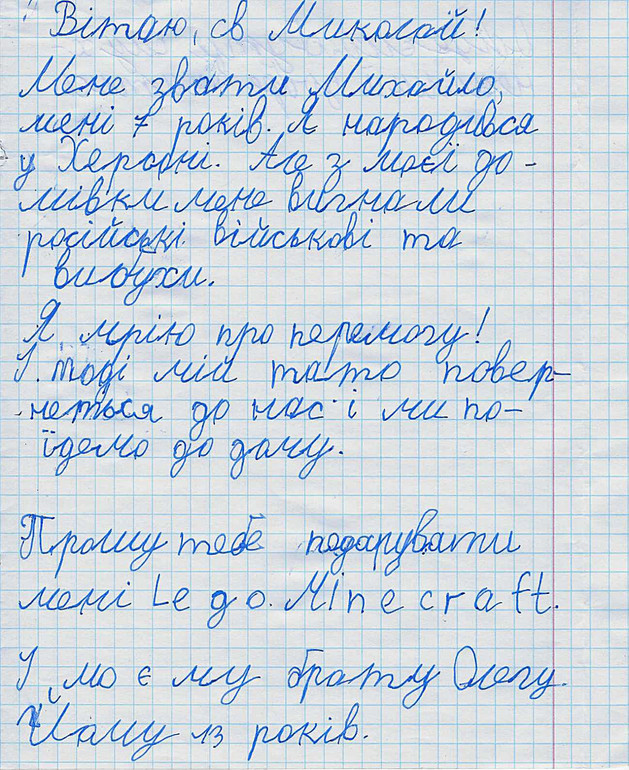 Вітаю, св Миколай!
Мене звати Михайло,
мені 7 років. Я народився
у Херсоні. Але з моєї до-
мівки мене вигнали
російські військові та
вибухи.
Я мрію про перемогу!
І тоді мій тато повер-
неться до нас і ми по-
їдемо до дому.
Прошу тебе подарувати
мені Lego. Minecraft.
І моєму брату Олегу.
Йому 13 років.